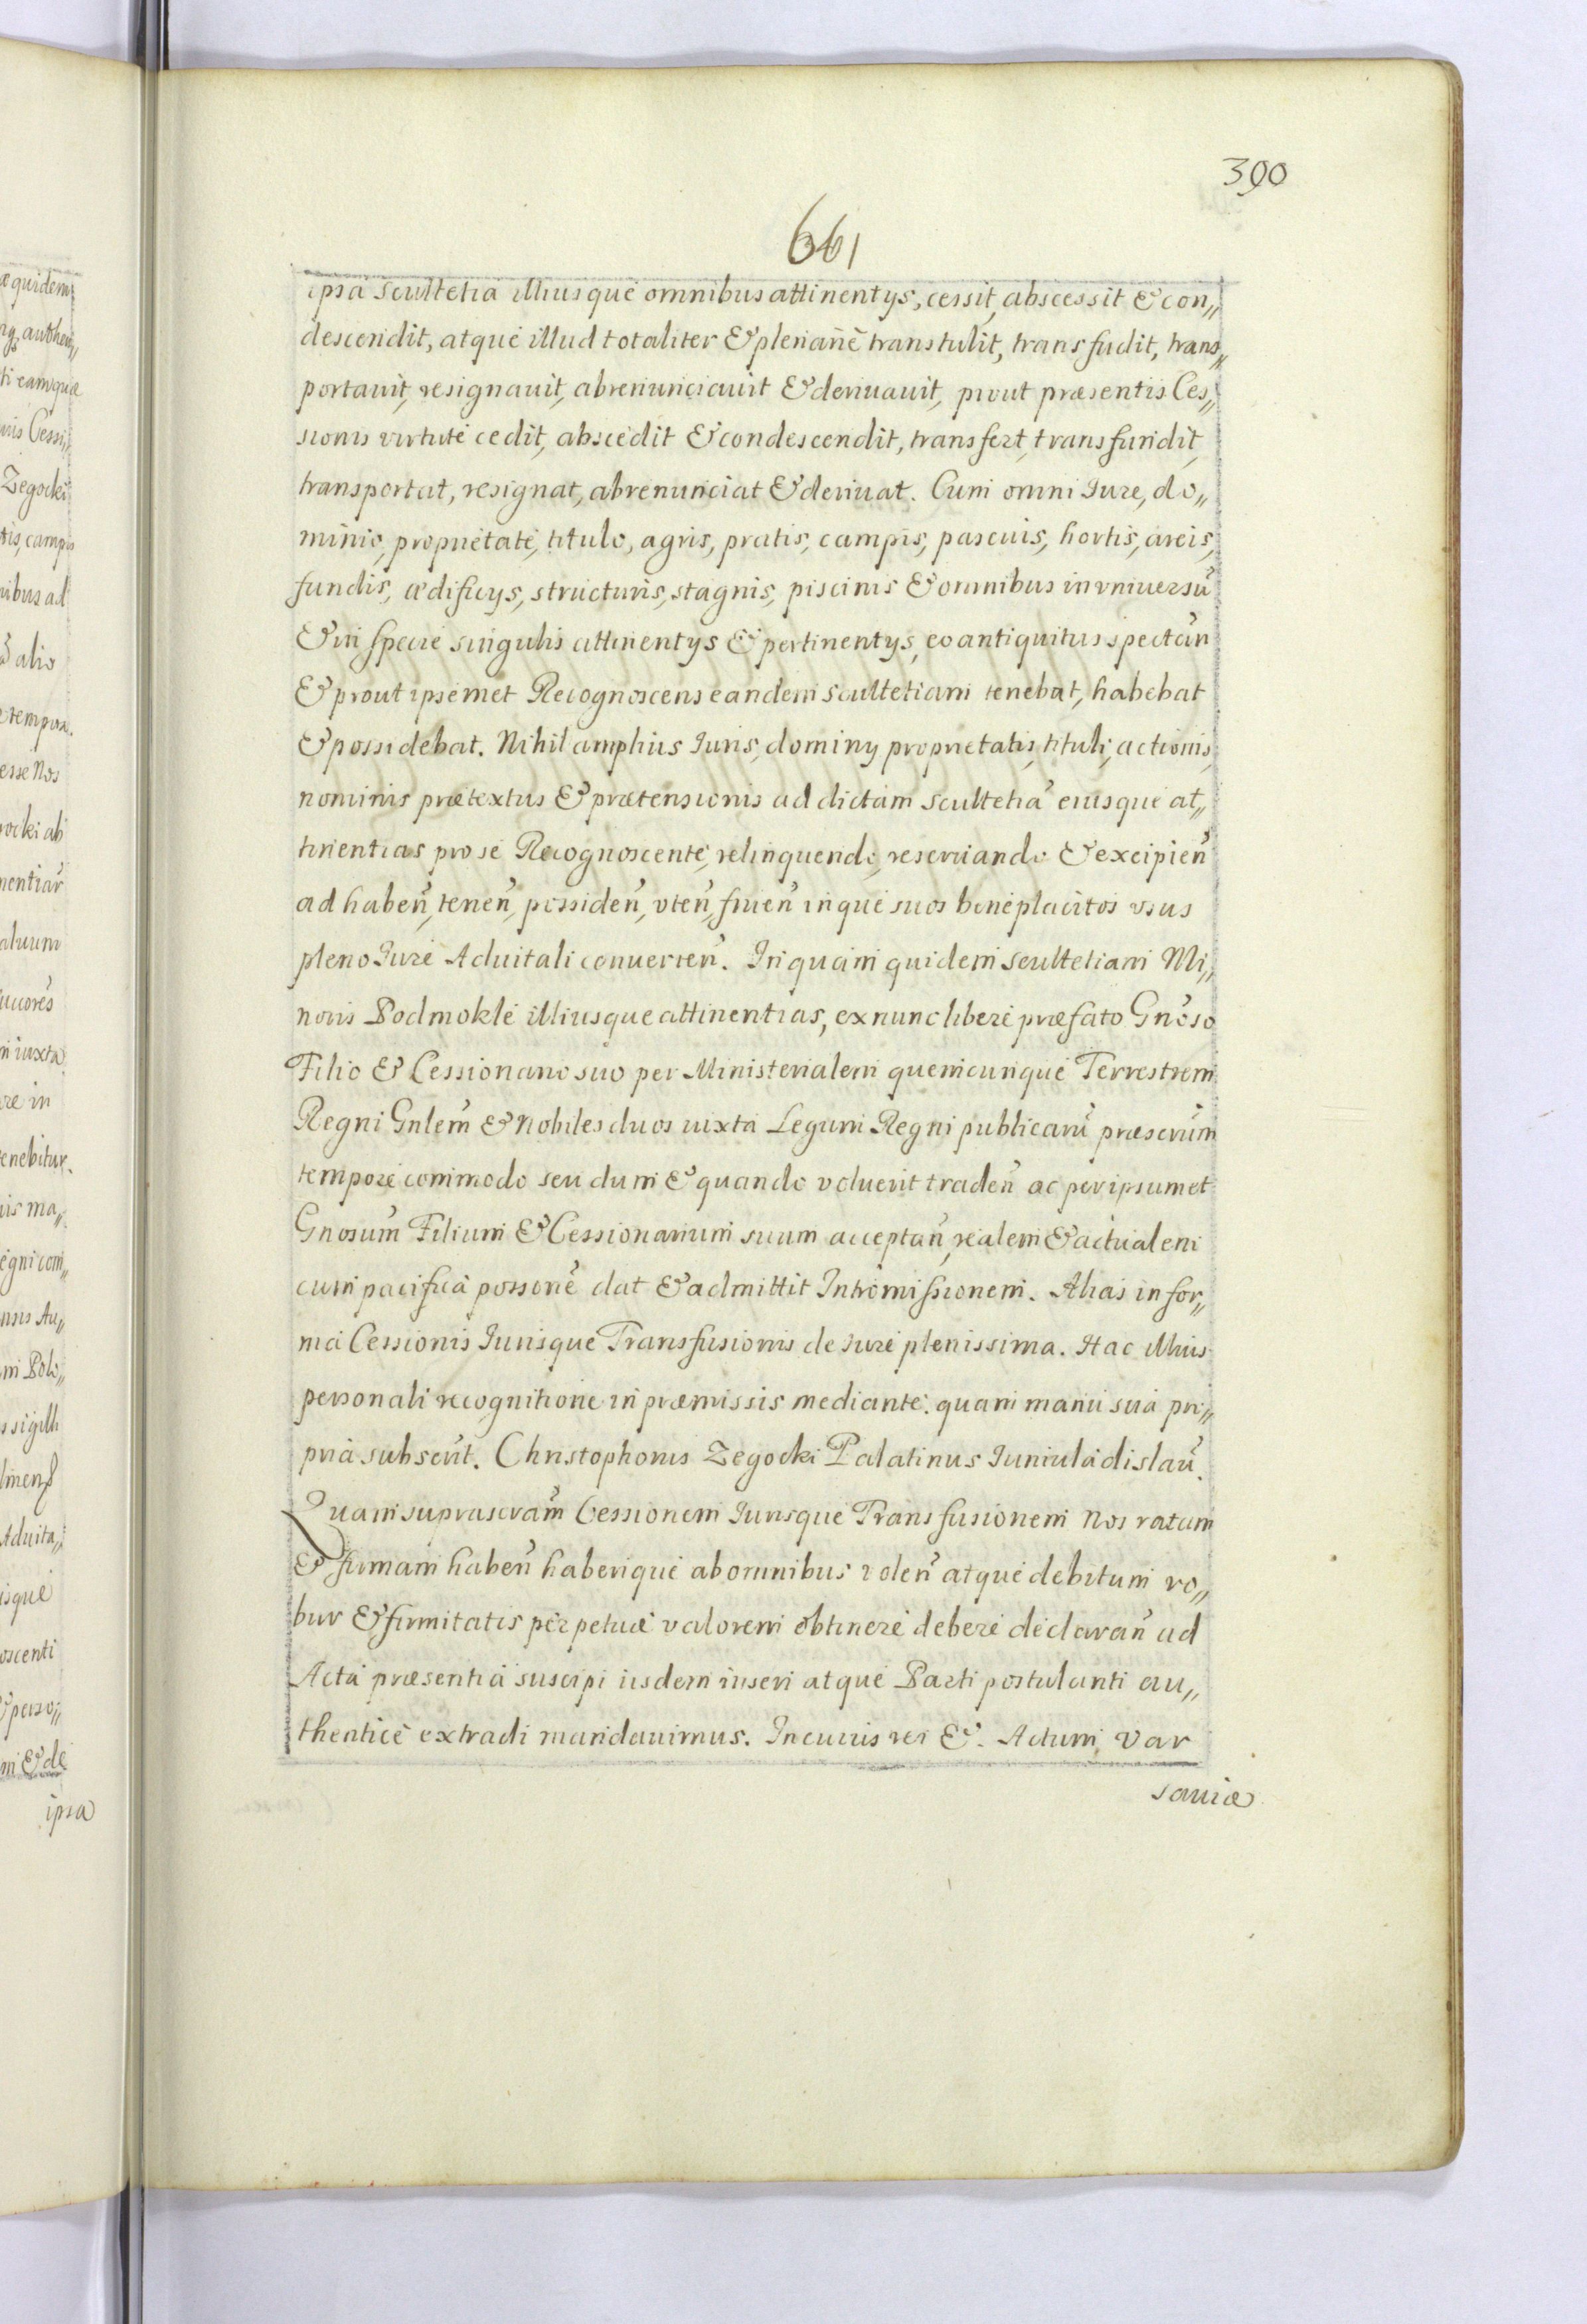 390
661
ipsa Scultetia illiusque omnibus attinentys, cessit, abscessit & con„
descendit, atque illud totaliter & plenarie transtulit, transfudit, trans„
portavit, resignavit, abrenunciavit & derivavit, prout præsentis Ces„
sionis virtute cedit, abscedit & condescendit, transfert, transfundit,
transportat, resignat, abrenunciat & derivat. Cum omni Jure, do„
minio, proprietate, titulo, agris, pratis, campis, pascuis, hortis, areis,
fundis, ædificys, structuris, stagnis, piscinis & omnibus in vniuersũ
& in specie singulis attinentys & pertinentys, eo antiquitus spectañ
& prout ipsemet Recognoscens eandem Scultetiam tenebat, habebat
& possidebat. Nihil amplius Juris, dominy proprietatis, tituli, actionis,
nominis prætextus & prætensionis ad dictam Scultetiã eiusque at„
tinentias pro se Recognoscente, relinquendo, reservando & excipieñ
ad habeñ, teneñ, possideñ, vteñ, frueñ inque suos beneplacitos vsus
pleno Jure Aduitali conuerteñ. In quam quidem Scultetiam Mi„
noris Podmokle illiusque attinentias, ex nunc libere præfato Gnoso
Filio & Cessionario suo per Ministerialem quemcunque Terrestrem
Regni Gnlem & Nobiles duos iuxta Legum Regni publicarũ præscrum
tempore commodo seu dum & quando voluerit tradeñ ac per ipsummet
Gnosum Filium & Cessionarium suum acceptañ, realem & actualem
cum pacifica possone dat & admittit Intromissionem. Alias in for„
ma Cessionis Jurisque Transfusionis de Jure plenissima. Hac illius
personali recognitione in præmissis mediante. quam manu sua pro„
pria subscrit. Christophorus Zegocki Palatinus Juniuladislau.
Quam suprascram Cessionem Jurisque Transfusionem Nos ratam
& firmam habeñ haberique ab omnibus voleñ atque debitum ro„
bur & firmitatis perpetuæ valorem obtinere debere declarañ ad
Acta præsentia suscipi iisdem inseri atque Parti postulanti au„
thentice extradi mandauimus. In cuius rei &. Actum Var
sauiæ